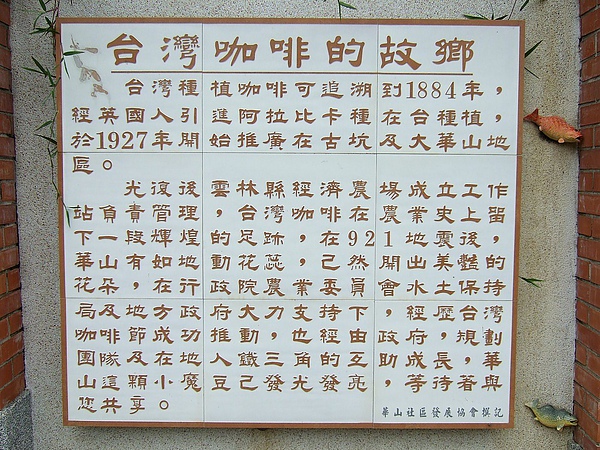 台灣咖啡的故鄉
台灣種植咖啡可追溯到1884年，
經英國人引進阿拉比卡種在台種植，
於1927年開始推廣在古坑及大華山地
區。
光復後雲林縣經濟農場成立工作
站負責管理，台灣咖啡在農業史上留
下一段輝煌的足跡，在921地震後，
華山有如地動花蕊，己然開出美豔的
花朵，在行政院農業委員會水土保持
局及地方政府大力支持下，經歷台灣
咖啡節成功推動，也經由政府規劃
團隊及在地鐵三角的互助，成長，華
山這顆小魔豆己發光發亮，等待著與
您共享。
華山社區發展協會撰記